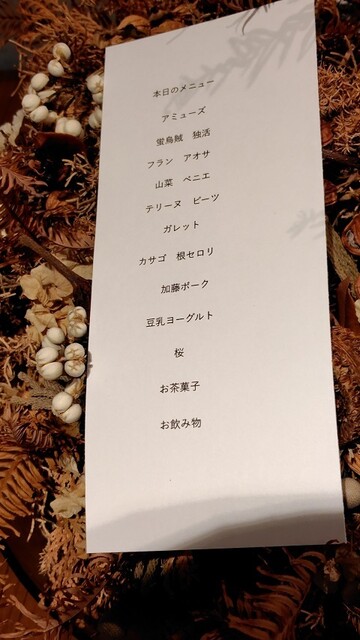 本日のメニュー
アミューズ
蛍烏賊　独活
フラン　アオサ
山菜　ベニエ
テリーヌ　ビーツ
ガレット
カサゴ　根セロリ
加藤ポーク
豆乳ヨーグルト
桜
お茶菓子
お飲み物